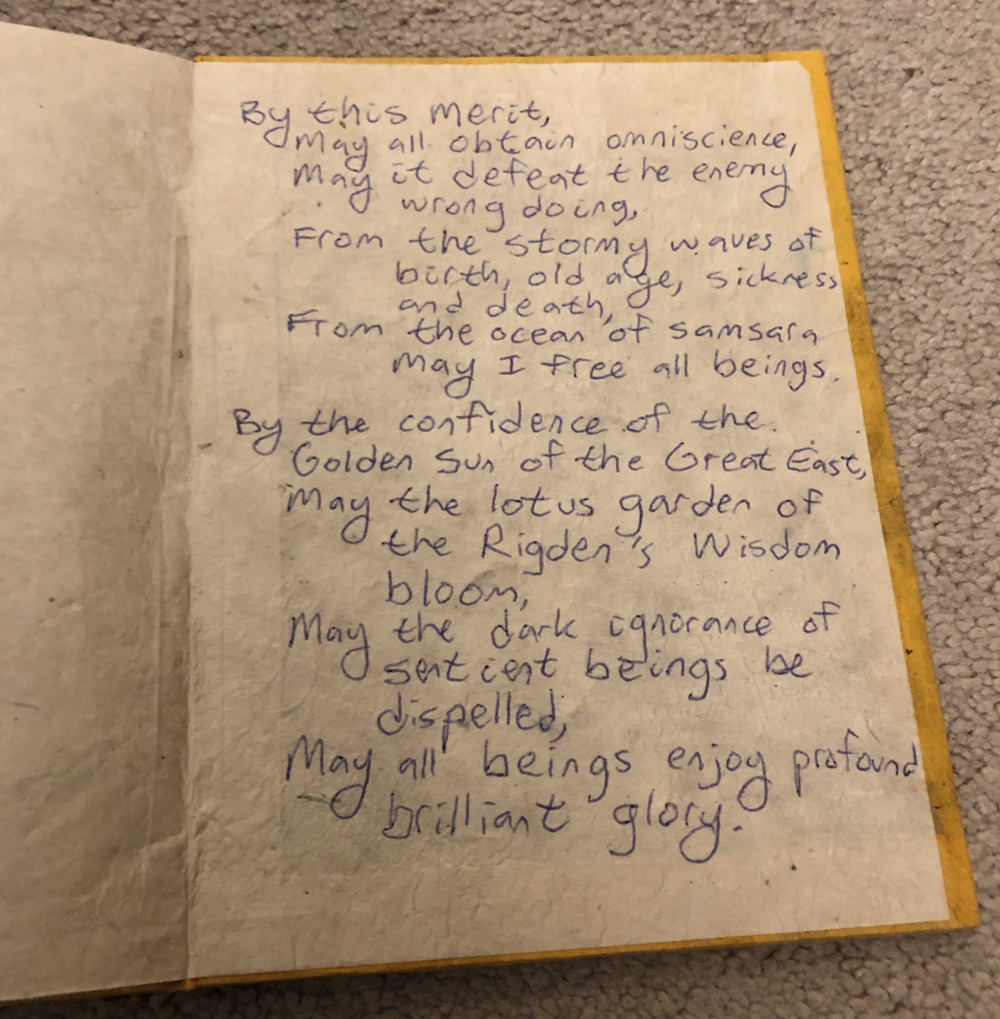 By this merit,
May all obtain omniscience,
May it defeat the enemy
wrong doing,
From the stormy waves of
birth, old age, sickness
and death,
From the ocean of samsara
may I free all beings.
By the confidence of the
Golden Sun of the Great East,
May the lotus garden of
the Rigden's Wisdom
bloom,
May the dark ignorance of
sentient beings be
dispelled,
May all beings enjoy profound
brilliant glory.